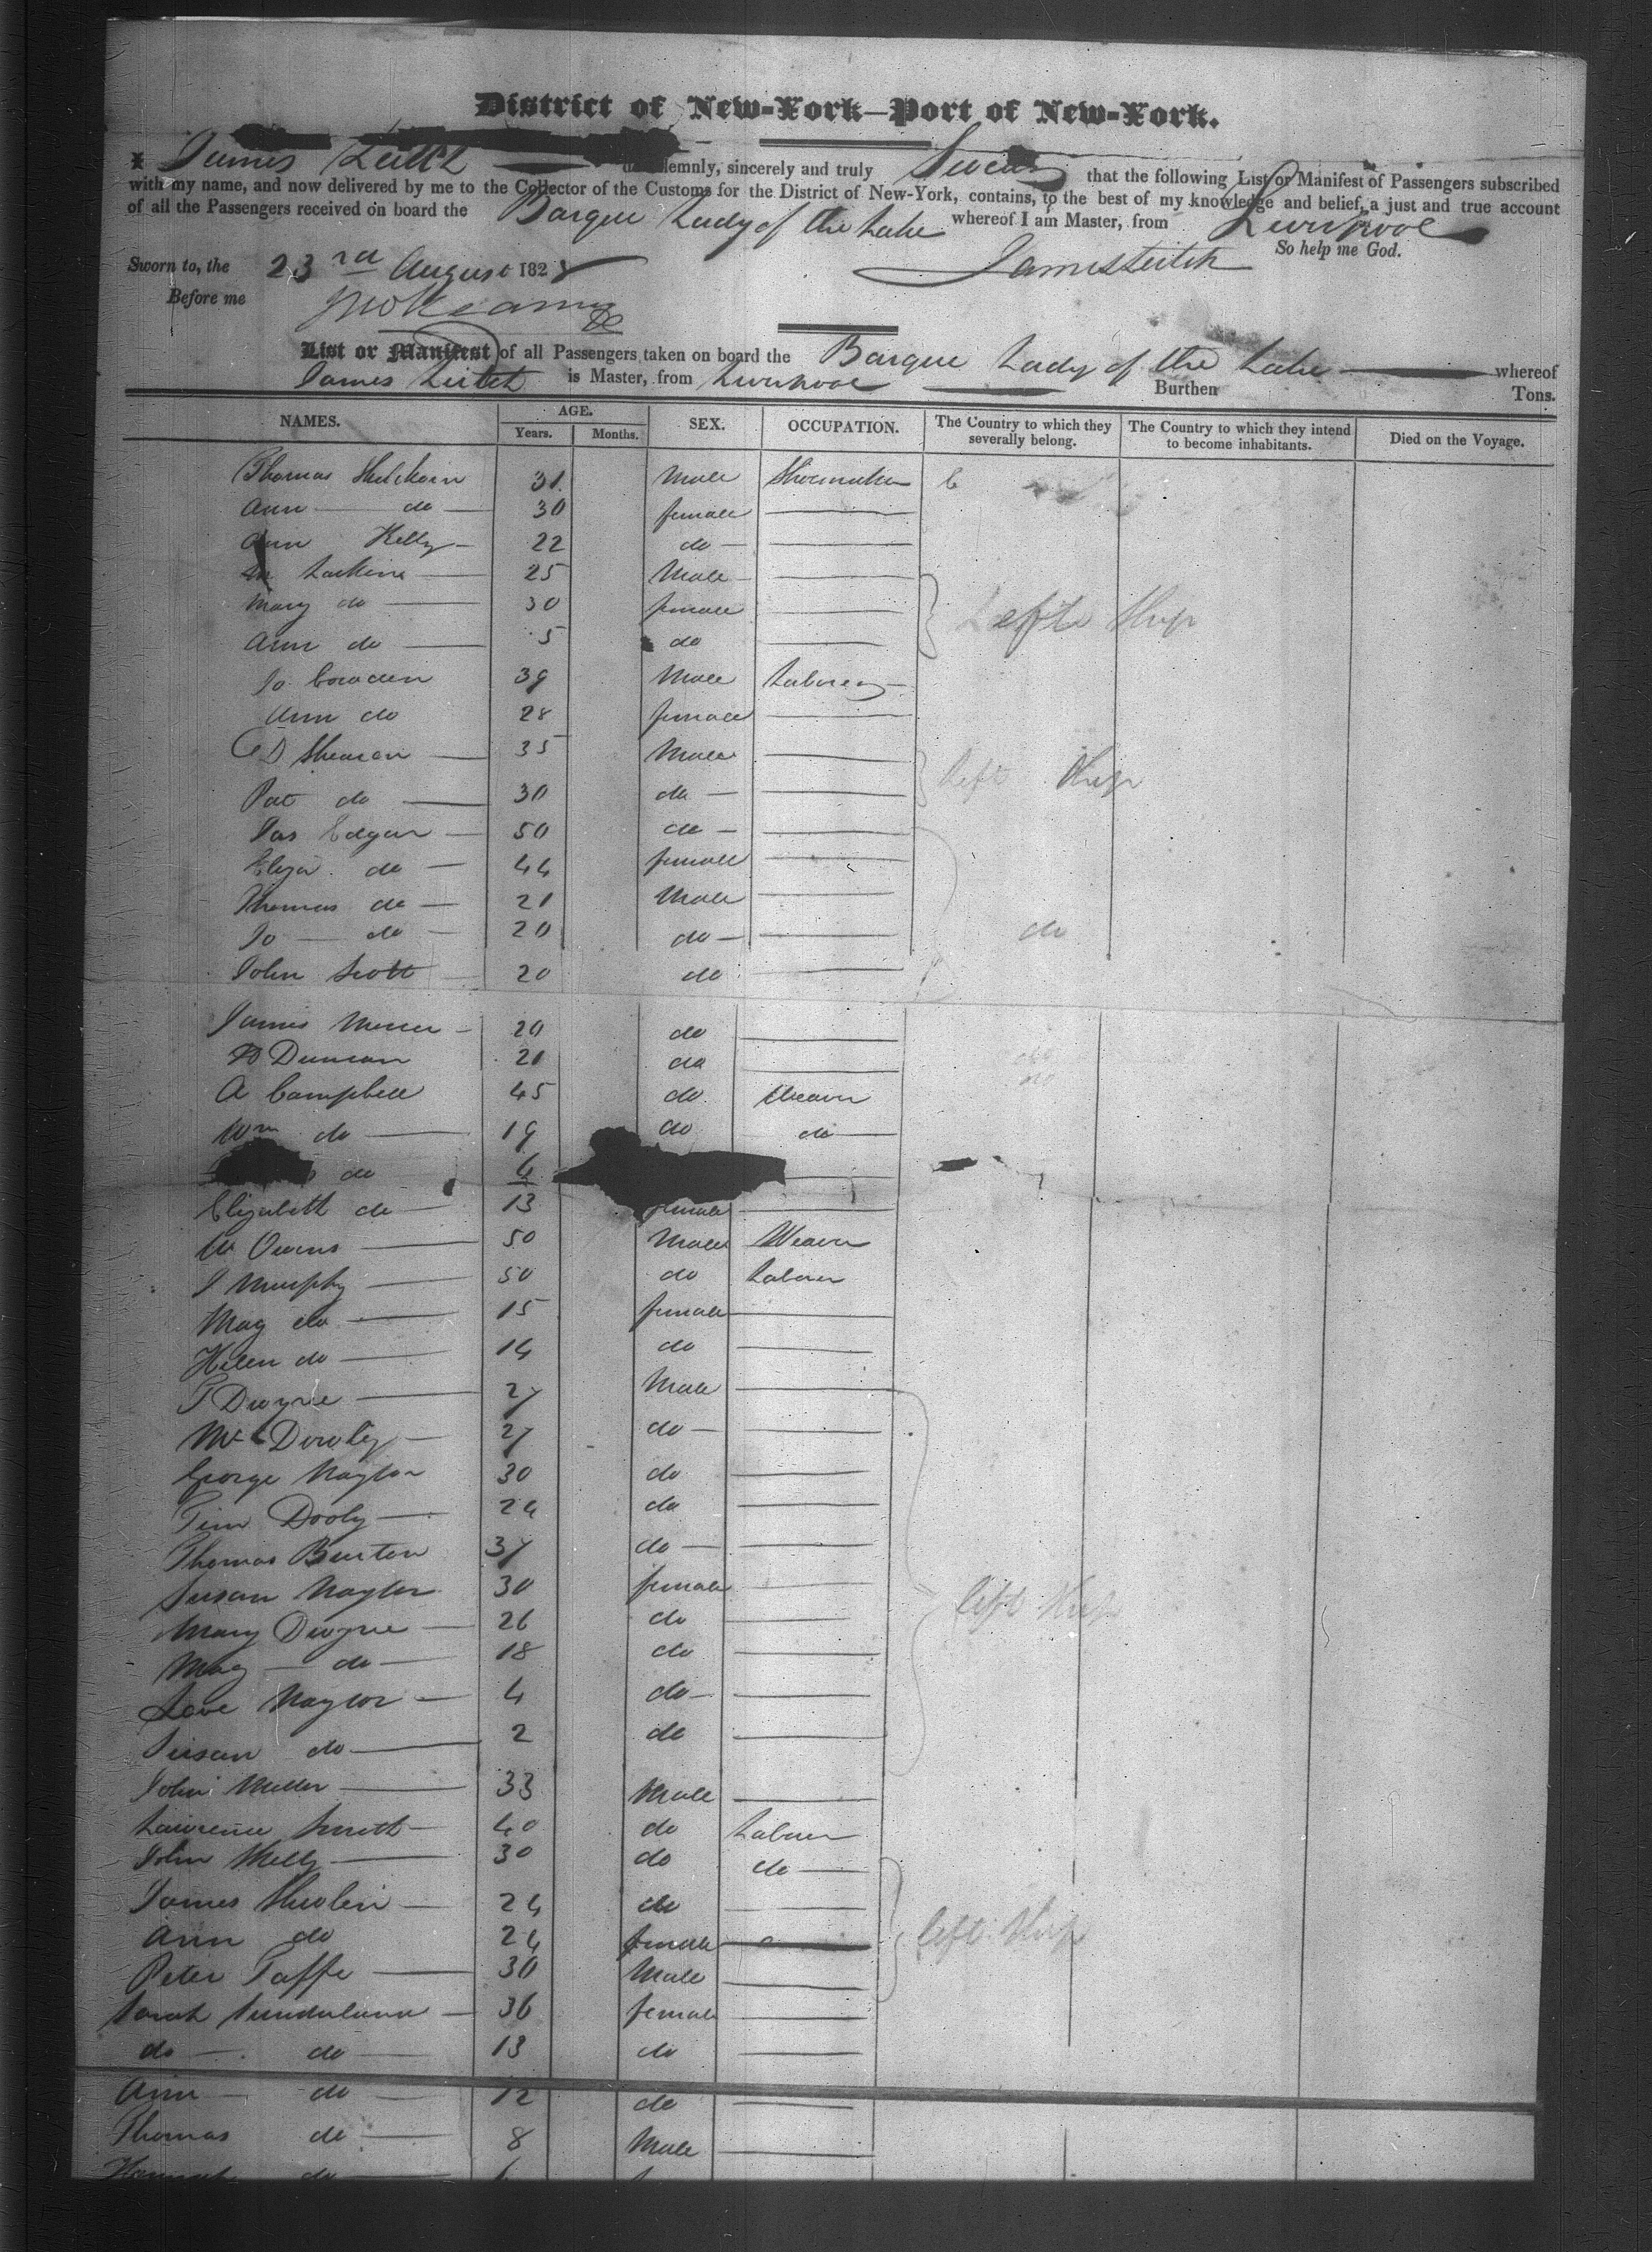 District of New-York—Port of New-York.
I James Leitch do solemnly, sincerely and truly Swear that the following List or Manifest of Passengers subscribed
with my name, and now delivered by me to the Collector of the Customs for the District of New-York, contains, to the best of my knowledge and belief, a just and true account
of all the Passengers received on board the Barque Lady of the Lake whereof I am Master, from Liverpool
So help me God.
Sworn to, the 23rd August 1828 James Leitch
Before me
List or Manifest of all Passengers taken on board the Barque Lady of the Lake whereof
James Leitch is Master, from Liverpool Burthen Tons.
NAMES. AGE. Years. Months. SEX. OCCUPATION. The Country to which they severally belong. The Country to which they intend to become inhabitants. Died on the Voyage.
Thomas 31 Male Shoemaker
Ann do 30 female
Ann Kelly 22 do
Larkins 25 Male
Mary do 30 female Left Ship
Ann do 5 do
Jo Cowden 39 Male Laborer
Ann do 28 female
D Shearan 35 Male
Pat do 30 do left Ship
Jas Edgar 50 do
Eliza do 44 female
Thomas do 21 Male
Jo do 20 do do
John Scott 20 do
James Mercer 20 do
Duncan 21 do
A Campbell 45 do Weaver
Wm do 19 do do
do 4
Elizabeth do 13 female
W Owens 50 Male Weaver
J Murphy 50 do Laborer
Mag do 15 female
Helen do 14 do
T Dwyre 27 Male
27 do
George Naylor 30 do
Tim Dooly 24 do
Thomas Burton 37 do
Susan Naylor 30 female left Ship
Mary Dwyre 26 do
Mag do 18 do
Naylor 4 do
Susan do 2 do
John Miller 33 Male
Lawrence Smith 40 do Laborer
John Kelly 30 do do
James 24 do
Ann do 24 female left Ship
Peter Taffe 30 Male
Sarah Sunderland 36 female
do do 13 do
Ann do 12 do
Thomas do 8 Male
Hannah do